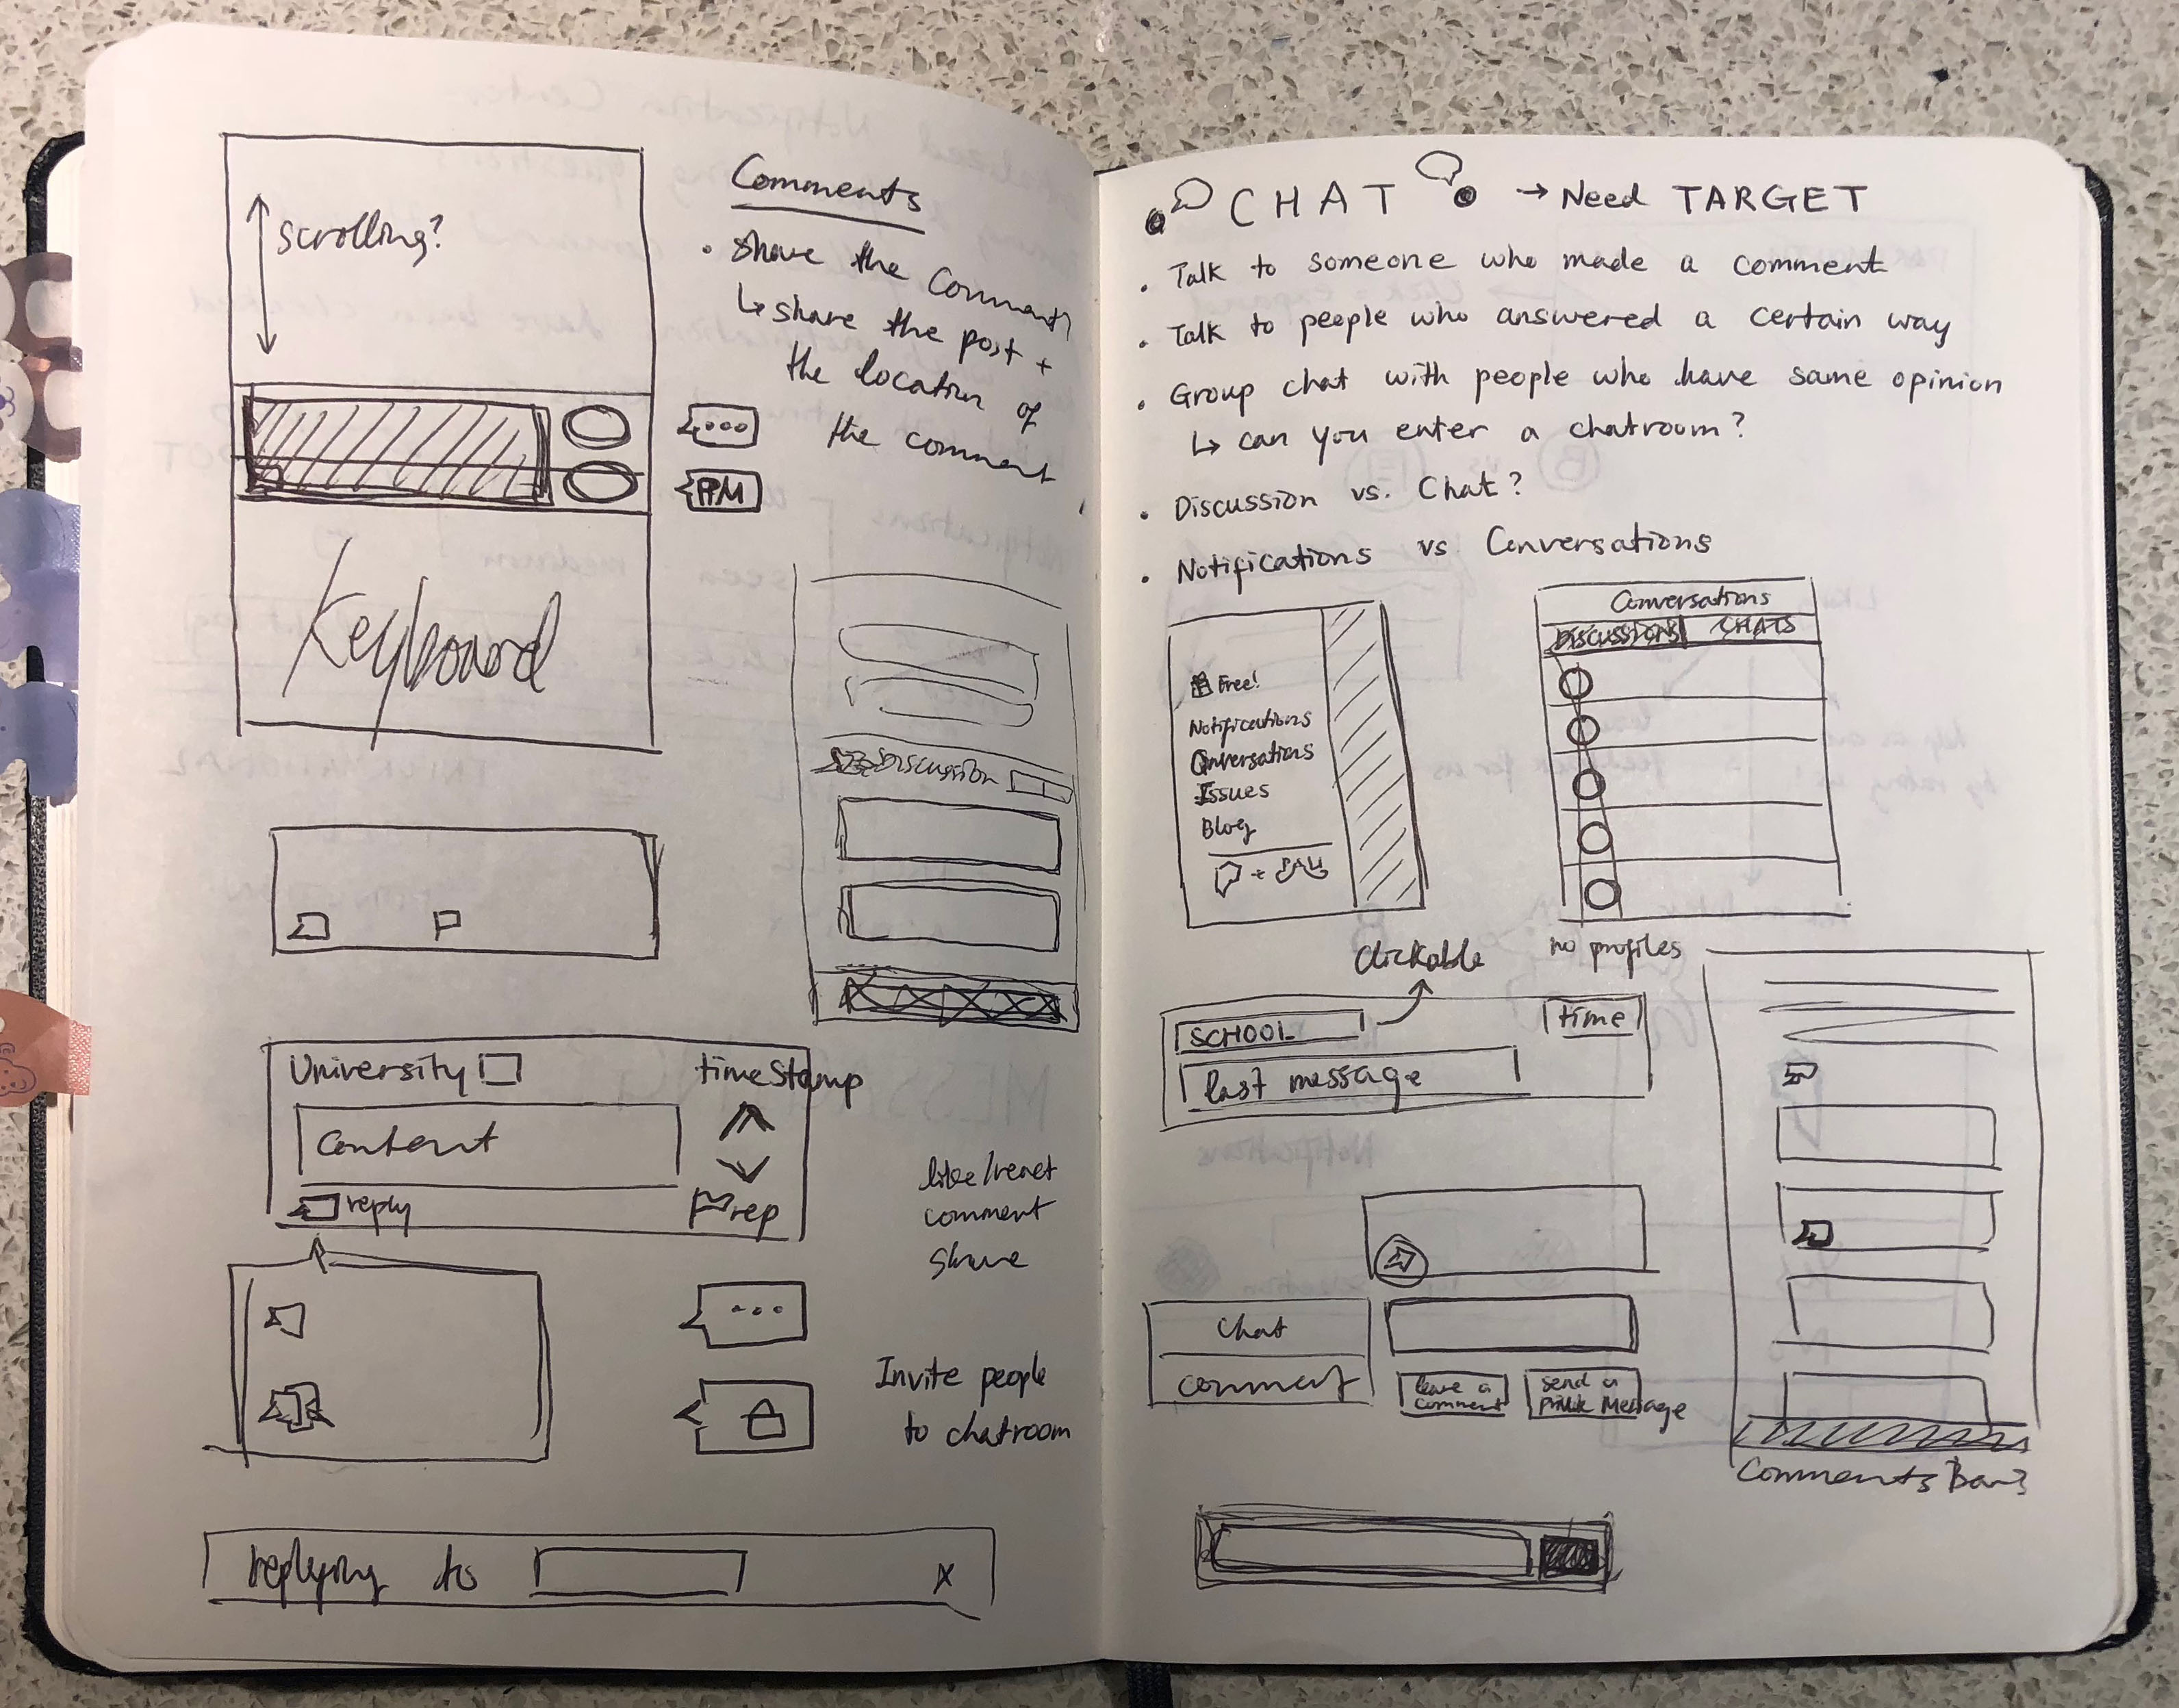 scrolling?
Comments
• Share the Comment
↳ share the post +
the location of
the comment
...
PM
Keyboard
Discussion
University
timestamp
Content
reply
rep
comment
share
...
Invite people
to chatroom
replying to
x
CHAT → Need TARGET
• Talk to someone who made a comment
• Talk to people who answered a certain way
• Group chat with people who have same opinion
↳ can you enter a chatroom?
• Discussion vs. Chat?
• Notifications vs Conversations
Free!
Notifications
Conversations
Issues
Blog
+
Conversations
DISCUSSIONS CHATS
no profiles
Clickable
SCHOOL
time
last message
chat
comment
leave a
comment
send a
private Message
Comments Bar?